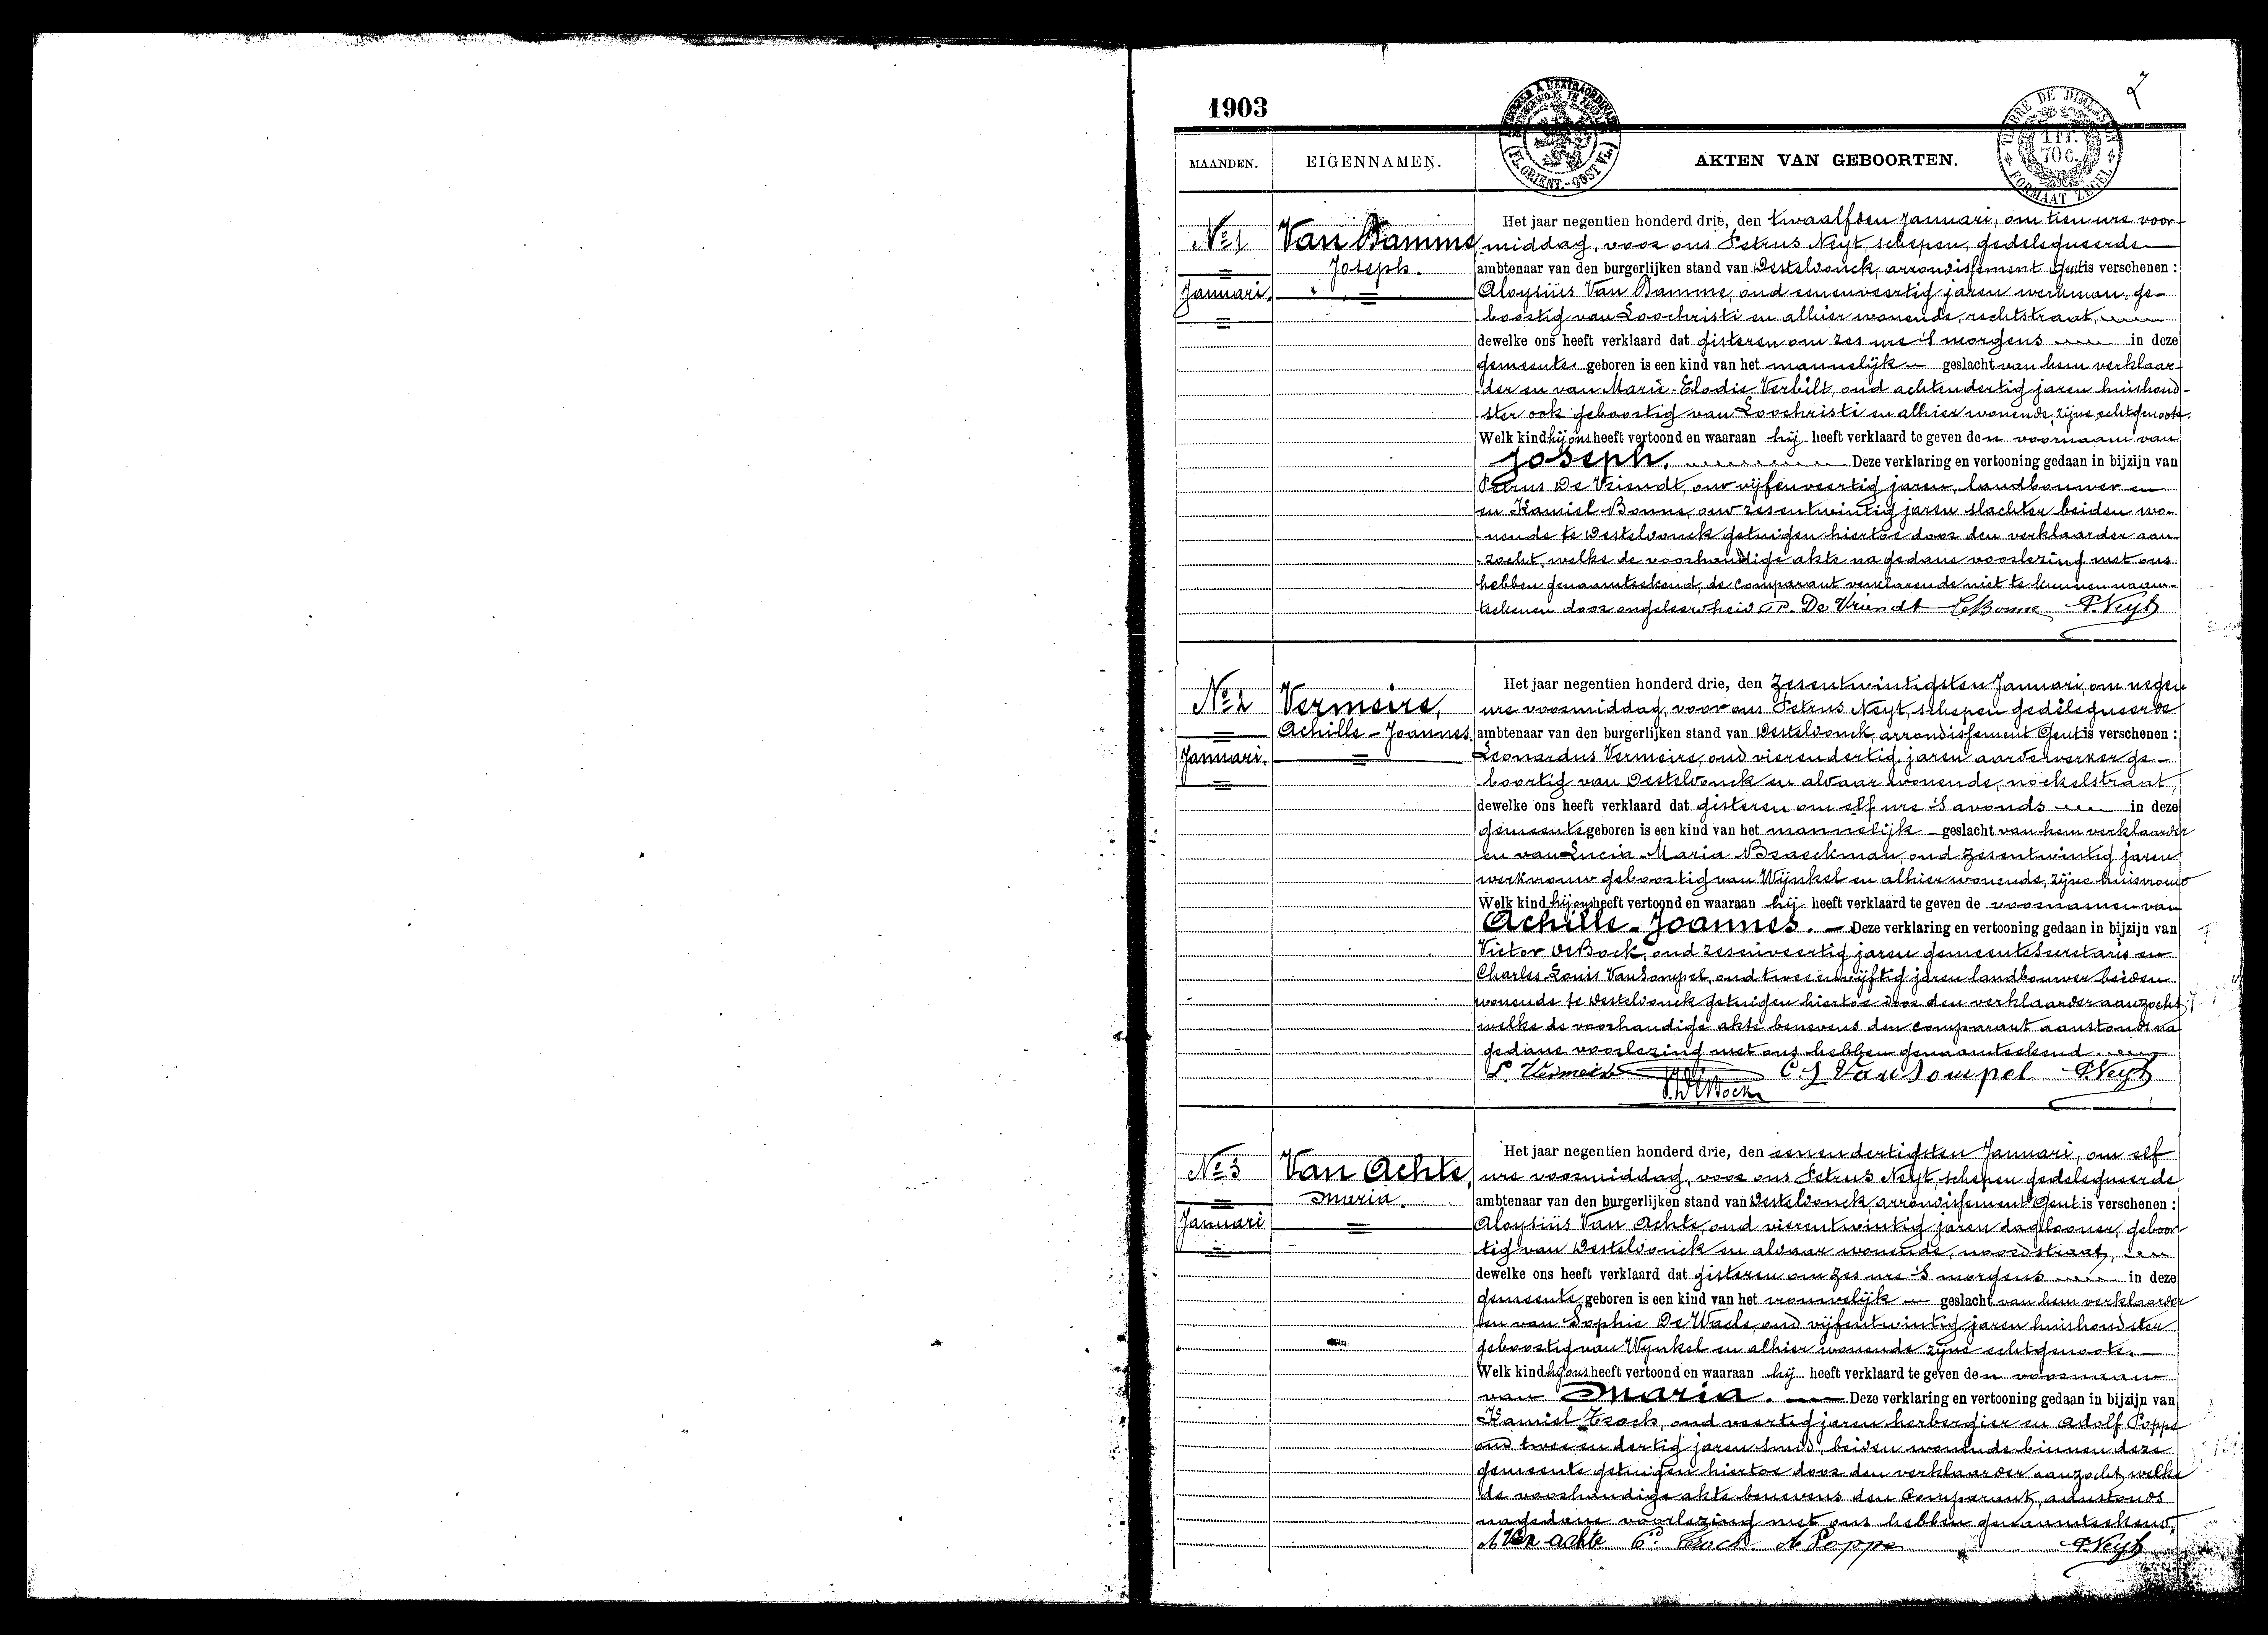 2
1903
MAANDEN.
EIGENNAMEN.
AKTEN VAN GEBOORTEN.
TIMBRE DE DIMENSION
1 FR.
70 C.
FORMAAT ZEGEL
(FL. ORIENT.-OOST VL.)
No 1
Januari.
Van Damme
Joseph.
Het jaar negentien honderd drie, den twaalfden Januari, om tien ure voor-
middag, voor ons Petrus Neyt, schepen, gedelegueerde
ambtenaar van den burgerlijken stand van Desteldonck, arrondissement Gent is verschenen :
Aloysiüs Van Damme, oud eenenveertig jaren werkman, ge-
boortig van Loochristi en alhier wonende, rechtstraat,
dewelke ons heeft verklaard dat gisteren om zes ure 's morgens in deze
gemeente geboren is een kind van het mannelijk geslacht van hem verklaar-
der en van Marie-Elodie Verbilt, oud achtendertig jaren huishoud-
ster ook geboortig van Loochristi en alhier wonende, zijne echtgenoote.
Welk kind hij ons heeft vertoond en waaraan hij heeft verklaard te geven den voornaam van
Joseph. Deze verklaring en vertooning gedaan in bijzijn van
Petrus De Vriendt, oud vijfenveertig jaren, landbouwer en
en Kamiel Bonne, oud zesentwintig jaren slachter beiden wo-
nende te Desteldonck getuigen hiertoe door den verklaarder aan-
zocht, welke de voorhandige akte na gedane voorlezing met ons
hebben genaamteekend, de comparant verklarende niet te kunnen naam-
teekenen door ongeleerdheid. P. De Vriendt C. Bonne P. Neyt
No 2
Januari.
Vermeire,
Achille-Joannes.
Het jaar negentien honderd drie, den zesentwintigsten Januari, om negen
ure voormiddag, voor ons Petrus Neyt, schepen gedelegueerde
ambtenaar van den burgerlijken stand van Desteldonck, arrondissement Gent is verschenen :
Leonardus Vermeire, oud vierendertig jaren aardewerker ge-
boortig van Desteldonck en aldaar wonende, nockelstraat,
dewelke ons heeft verklaard dat gisteren om elf ure 's avonds in deze
gemeente geboren is een kind van het mannelijk geslacht van hem verklaarder
en van Lucia-Maria Braeckman, oud zesentwintig jaren
werkvrouw geboortig van Wynkel en alhier wonende, zijne huisvrouw
Welk kind hij ons heeft vertoond en waaraan hij heeft verklaard te geven de voornamen van
Achille-Joannes. Deze verklaring en vertooning gedaan in bijzijn van
Victor De Bock, oud zesenveertig jaren gemeentesecretaris en
Charles Louis Van Sompel, oud tweeënvijftig jaren landbouwer beiden
wonende te Desteldonck getuigen hiertoe door den verklaarder aanzocht,
welke de voorhandige akte benevens den comparant aanstonds na
gedane voorlezing met ons hebben genaamteekend.
L. Vermeire C. L Van Sompel P. Neyt
V. De Bock
No 3
Januari
Van Achte,
Maria.
Het jaar negentien honderd drie, den eenendertigsten Januari, om elf
ure voormiddag, voor ons Petrus Neyt, schepen gedelegueerde
ambtenaar van den burgerlijken stand van Desteldonck, arrondissement Gent is verschenen :
Aloysiüs Van Achte, oud vierentwintig jaren daglooner, geboor
tig van Desteldonck en aldaar wonende, noordstraat,
dewelke ons heeft verklaard dat gisteren om zes ure 's morgens in deze
gemeente geboren is een kind van het vrouwelijk geslacht van hem verklaarder
en van Sophie De Waele, oud vijfentwintig jaren huishoudster
geboortig van Wynkel en alhier wonende zijne echtgenoote.
Welk kind hij ons heeft vertoond en waaraan hij heeft verklaard te geven den voornaam
van Maria. Deze verklaring en vertooning gedaan in bijzijn van
Kamiel oud veertig jaren herbergier en Adolf Poppe
oud tweeendertig jaren smid, beiden wonende binnen deze
gemeente getuigen hiertoe door den verklaarder aanzocht, welke
de voorhandige akte benevens den Comparant, aanstonds
na gedane voorlezing met ons hebben genaamteekend.
A Van achte A Poppe P. Neyt